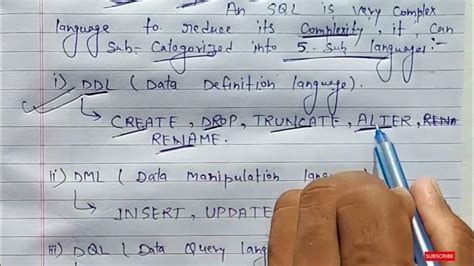 An SQL is very complex
language to reduce its Complexity, it, can
Sub-Catogorized into 5-Sub languages:-
i) DDL ( Data Definition language).
CREATE, DROP, TRUNCATE, ALTER, RENA
RENAME.
ii) DML ( Data manipulation langu
INSERT, UPDATE
iii) DQL ( Data Query lang
SUBSCRIBE